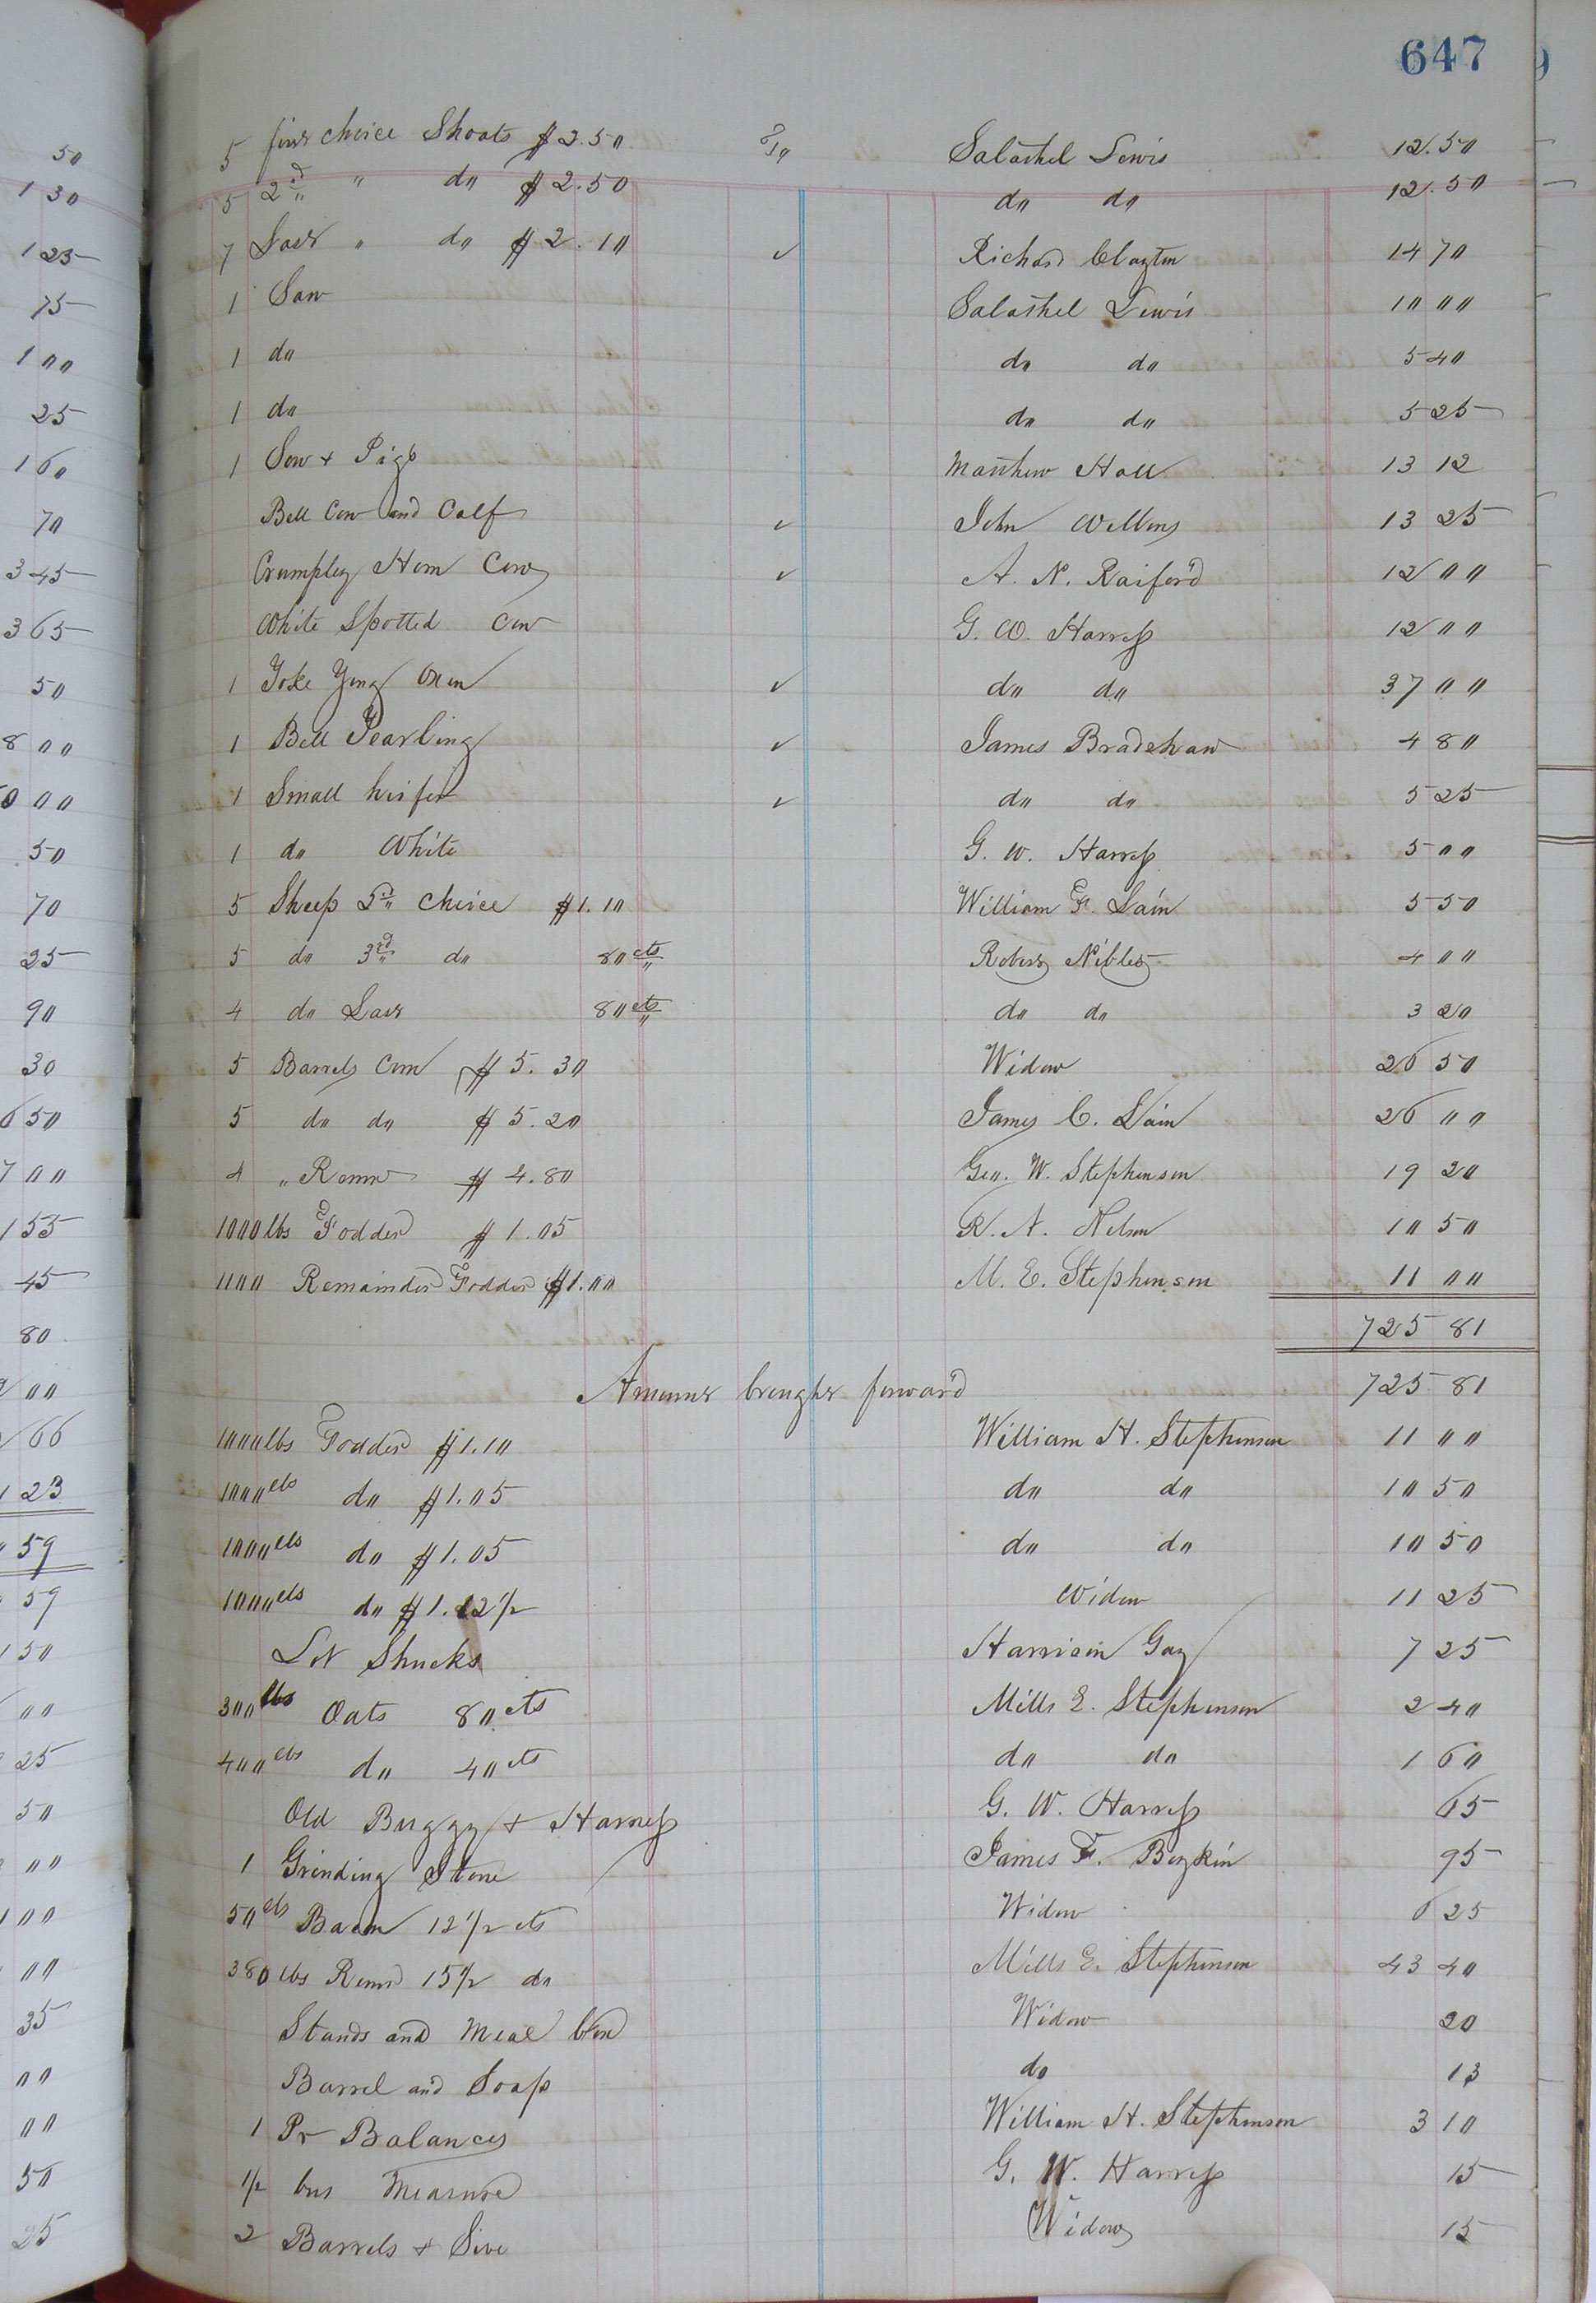 647
5 first choice Shoats $2.50 Salathel Lewis 12.50
5 2d " do $2.50 do do 12.50
7 Last " do $2.10 ✓ Richard Clayton 14 70
1 Sow Salathel Lewis 10 00
1 do do do 5 40
1 do do do 5 25
1 Sow + Pigs Matthew Hall 13 12
Bell Cow and Calf ✓ John Wellons 13 25
Crumpley Horn Cow ✓ A. N. Raiford 12 00
White Spotted Cow G. W. Harress 12 00
1 Yoke Yong Oxen ✓ do do 37 00
1 Bell Yearling ✓ James Bradshaw 4 80
1 Small heifer ✓ do do 5 25
1 do White G. W. Harress 5 00
5 Sheep choice $1.10 William F. Lain 5 50
5 do 3rd do 80 cts Robert Nibles 4 00
4 do Last 80 cts do do 3 20
5 Barrels Corn $5.30 Widow 26 50
5 do do $5.20 James C. Lain 26 00
4 " Remr $4.80 Geo. W. Stephenson 19 20
1000 lbs Fodder $1.05 R. A. Nelson 10 50
1100 Remainder Fodder $1.00 M. E. Stephenson 11 00
725 81
Amount brought forward 725 81
1000 lbs Fodder $1.10 William H. Stephenson 11 00
1000 lbs do $1.05 do do 10 50
1000 lbs do $1.05 do do 10 50
1000 lbs do $1.12 1/2 Widow 11 25
Lot Shucks Harrison Gay 7 25
300 lbs Oats 80 cts Mills E. Stephenson 2 40
400 lbs do 40 cts do do 1 60
Old Buggy + Harness G. W. Harress 65
1 Grinding Stone James F. Boykin 95
50 lbs Bacon 12 1/2 cts Widow 6 25
380 lbs Remd 15 1/2 do Mills E. Stephenson 43 40
Stands and Meal Widow 20
Barrel and Soap do 13
1 Pr Balances William H. Stephenson 3 10
1/2 bus Measure G. W. Harress 15
2 Barrels + Sive Widow 15